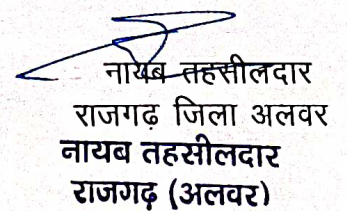 नायब तहसीलदार
राजगढ़ जिला अलवर
नायब तहसीलदार
राजगढ़ (अलवर)